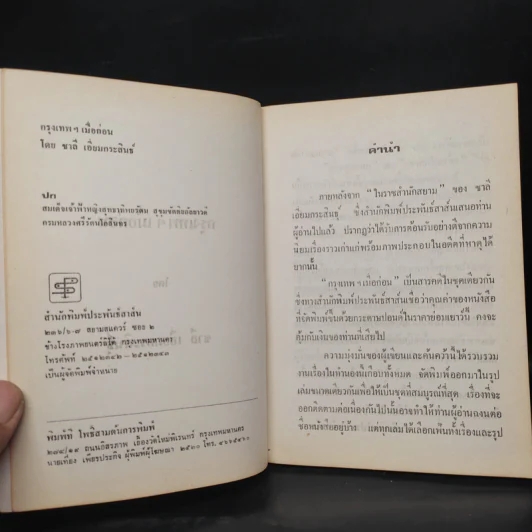 กรุงเทพฯ เมื่อก่อน
โดย ชาลี เอี่ยมกระสินธุ์
ปก
สมเด็จเจ้าฟ้าหญิงสุทธาทิพยรัตน สุขุมขัตติยกัลยาวดี
กรมหลวงศรีรัตนโกสินทร
สำนักพิมพ์ประพันธ์สาส์น
๒๓๖/๖-๗ สยามสแควร์ ซอย ๒
ข้างโรงภาพยนตร์ลิโด้ กรุงเทพมหานคร
โทรศัพท์ ๒๕๑๒๓๔๒ - ๒๕๑๒๓๔๓
เป็นผู้จัดพิมพ์จำหน่าย
พิมพ์ที่ โพธิ์สามต้นการพิมพ์
ถนนอิสรภาพ เมืองวัดใหม่พิเรนทร์ กรุงเทพมหานคร
นายเที่ยง เพียรประกิจ ผู้พิมพ์ผู้โฆษณา ๒๕๒๐ โทร.
คำนำ
ภายหลังจาก “ในราชสำนักสยาม” ของ ชาลี
เอี่ยมกระสินธุ์ ซึ่งสำนักพิมพ์ประพันธ์สาส์นเสนอท่าน
ผู้อ่านไปแล้ว ปรากฏว่าได้รับการต้อนรับอย่างดีจากความ
นิยมเรื่องราวเก่าแก่พร้อมภาพประกอบในอดีตที่หาดูได้
ยากนั้น
“กรุงเทพฯ เมื่อก่อน” เป็นสารคดีในชุดเดียวกัน
ซึ่งทางสำนักพิมพ์ประพันธ์สาส์นเชื่อว่าคุณค่าของหนังสือ
ที่จัดพิมพ์ขึ้นด้วยกระดาษปอนด์ในราคาย่อมเยาว์นี้ คงจะ
คุ้มกับเงินของท่านที่เสียไป
ความมุ่งมั่นของผู้เขียนและค้นคว้านี้ได้รวบรวม
กันเรื่องในทำนองนี้เกือบทั้งหมด จัดพิมพ์ออกมาในรูป
เล่มขนาดเดียวกันเพื่อให้เป็นชุดที่สมบูรณ์ที่สุด เรื่องที่จะ
ออกติดตามต่อเนื่องกันไปนั้นอาจทำให้ท่านผู้อ่านฉงนต่อ
ชื่อหนังสืออยู่บ้าง แต่ทุกเล่มได้เลือกเฟ้นทั้งเรื่องและรูป